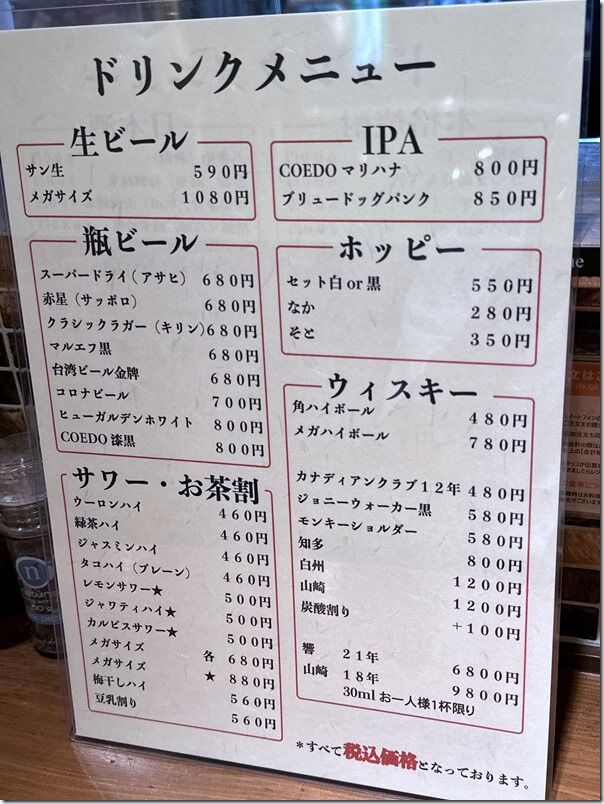 ドリンクメニュー
生ビール
サン生 590円
メガサイズ 1080円
瓶ビール
スーパードライ(アサヒ) 680円
赤星(サッポロ) 680円
クラシックラガー(キリン) 680円
マルエフ黒 680円
台湾ビール金牌 680円
コロナビール 700円
ヒューガルデンホワイト 800円
COEDO 漆黒 800円
サワー・お茶割
ウーロンハイ 460円
緑茶ハイ 460円
ジャスミンハイ 460円
タコハイ(プレーン) 460円
レモンサワー★ 500円
ジャワティハイ★ 500円
カルピスサワー★ 500円
メガサイズ 各 680円
メガサイズ ★ 880円
梅干しハイ 560円
豆乳割り 560円
IPA
COEDO マリハナ 800円
ブリュードッグパンク 850円
ホッピー
セット白 or 黒 550円
なか 280円
そと 350円
ウィスキー
角ハイボール 480円
メガハイボール 780円
カナディアンクラブ12年 480円
ジョニーウォーカー黒 580円
モンキーショルダー 580円
知多 800円
白州 1200円
山崎 1200円
炭酸割り +100円
響 21年 6800円
山崎 18年 9800円
30ml お一人様1杯限り
*すべて税込価格となっております。